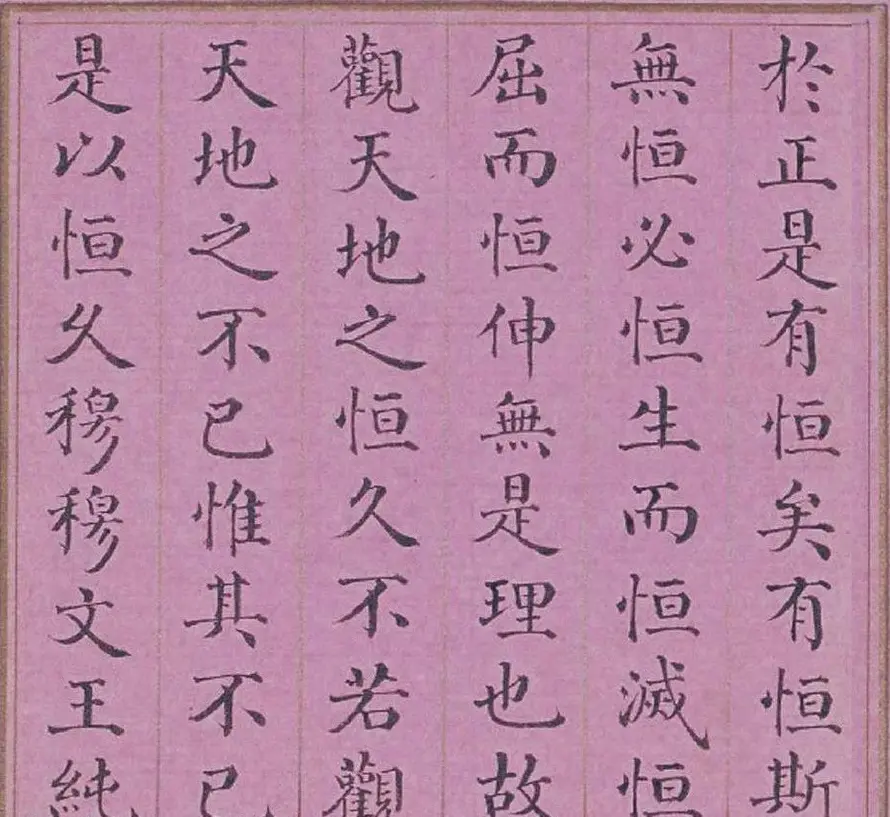 於正是有恒矣有恒斯
無恒必恒生而恒滅恒
屈而恒伸無是理也故
觀天地之恒久不若觀
天地之不已惟其不已
是以恒久穆穆文王純